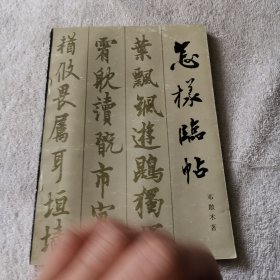 怎樣臨帖
邓散木著
葉飄颻遊鵾獨
霄耽讀翫市寓
輶攸畏屬耳垣